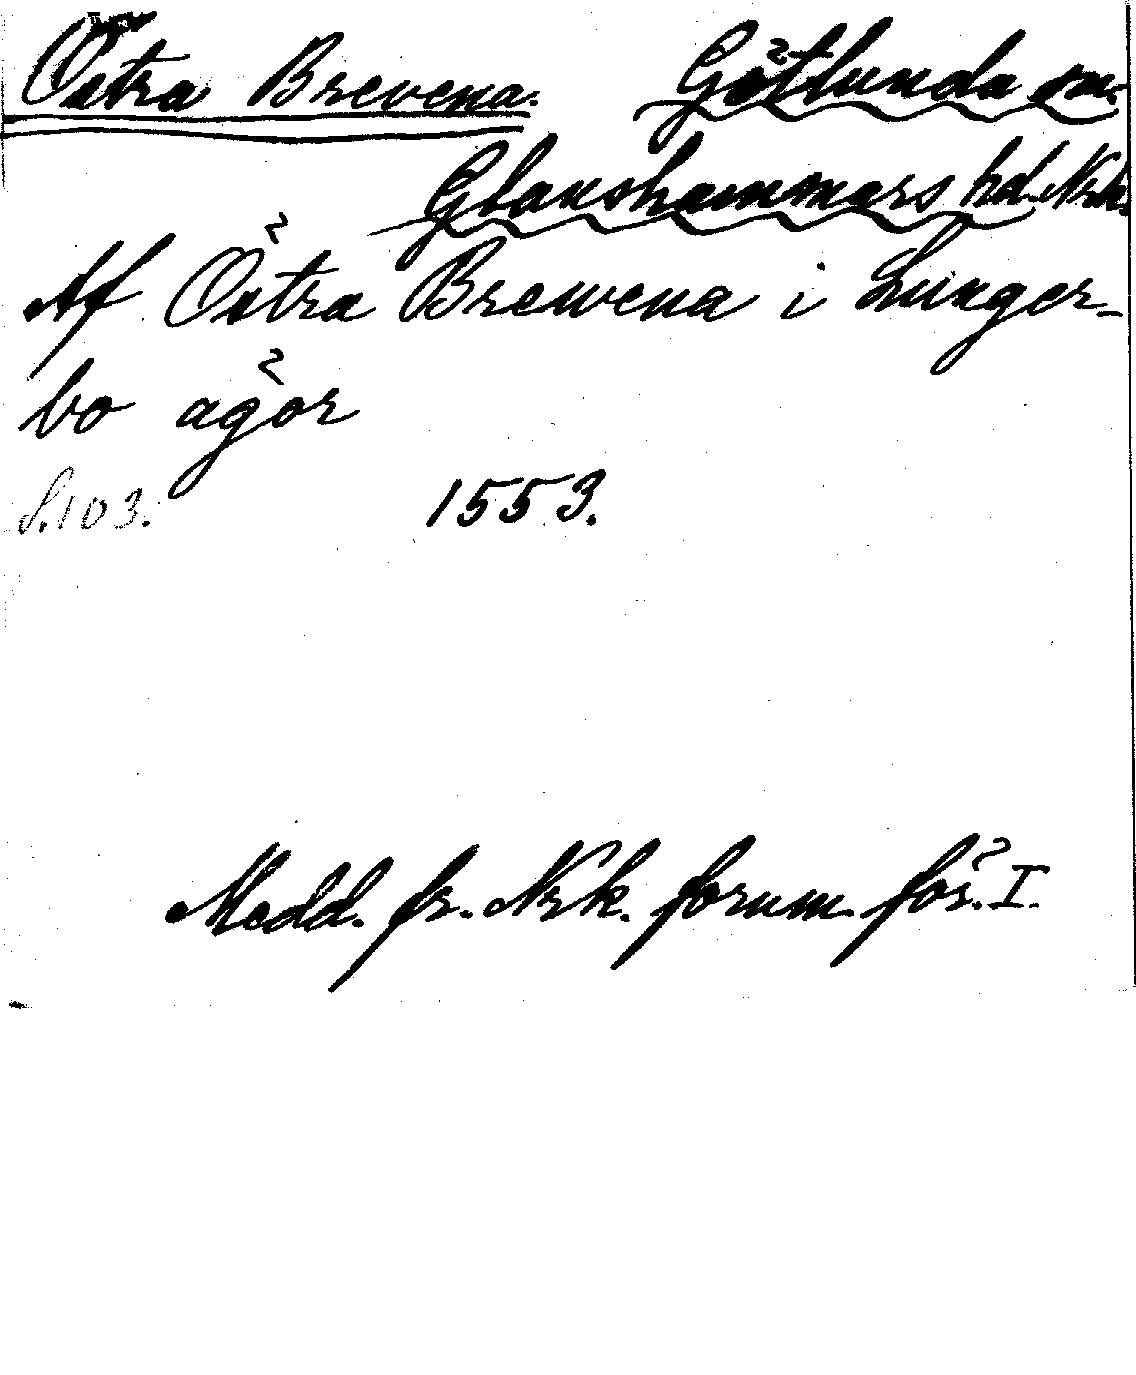 Östra Brevena. Götlunda sn.
Glanshammars hd. Nrk.
Af Östra Brewena i Lunger-
bo ägor
S. 103. 1553.
Medd. fr. Nrk. fornm. för. I.